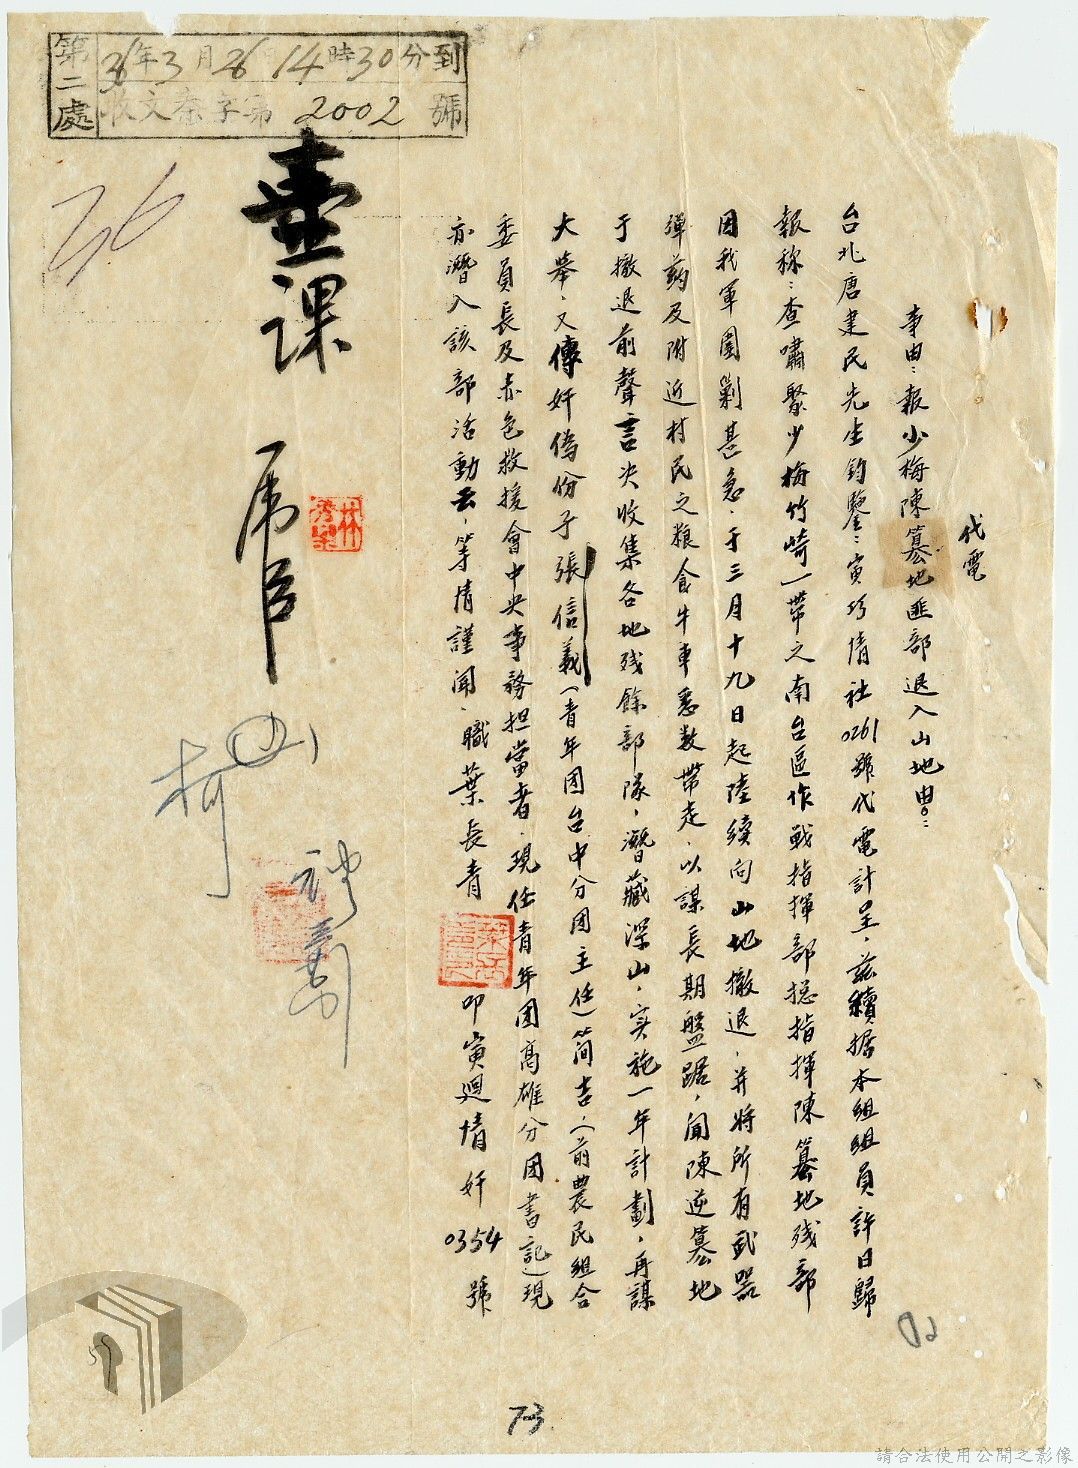 代電
事由：報少梅陳篡地匪部退入山地由。：
台北唐建民先生鈞鑒：寅巧情社0261號代電計呈，茲續據本組組員許日歸
報称：查嘯聚少梅竹崎一帶之南台區作戰指揮部總指揮陳篡地残部
因我軍圍剿甚急，于三月十九日起陸續向山地撤退，并將所有武器
彈葯及附近村民之粮食牛車悉数帶走，以謀長期盤踞，聞陳逆篡地
于撤退前聲言決收集各地残餘部隊，潛藏深山，实施一年計劃，再謀
大舉，又傳奸偽份子張信義（青年团台中分团主任）简吉（前農民組合
委員長及赤色救援會中央事務担當者，現任青年团高雄分团書記）現
亦潛入該部活動云，等情謹聞，職葉長青
叩寅迴情奸0354號
第二處
36年3月26 14時30分到
收文泰字第2002號
壹課
36
柯
73
請合法使用公開之影像